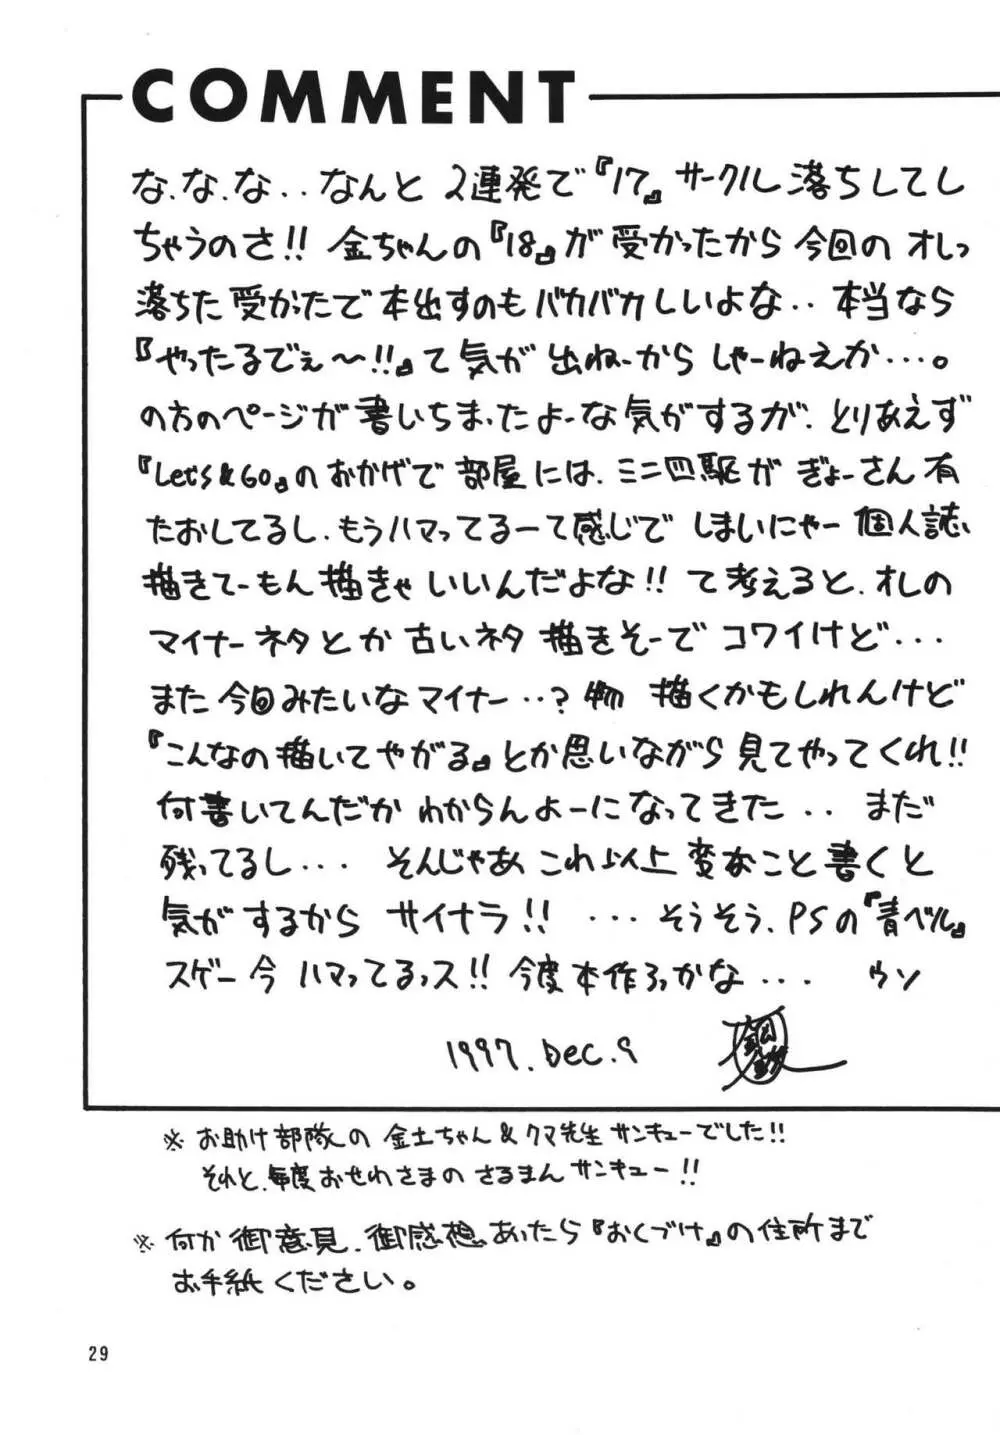 COMMENT
な、な、な‥なんと 2連発で『17』サークル落ちしてし
ちゃうのさ!! 金ちゃんの『18』が受かったから今回のオレっ
落ちた受かたで本出すのもバカバカしいよな‥ 本当なら
『やったるでぇ〜!!』て気が出ねーからしゃーねえか…。
の方のページが書いちまったよーな気がするが、とりあえず
『Let's&Go』のおかげで部屋には、ミニ四駆がぎょーさん有
たおしてるし、もうハマってるーて感じでしまいにゃー個人誌、
描きてーもん描きゃいいんだよな!! て考えると、オレの
マイナーネタとか古いネタ描きそーでコワイけど…
また今回みたいなマイナー‥?物 描くかもしれんけど
『こんなの描いてやがる』とか思いながら見てやってくれ!!
何書いてんだかわからんよーになってきた‥ まだ
残ってるし… そんじゃあこれ以上変なこと書くと
気がするからサイナラ!! …そうそう、PSの『青ベル』
スゲー今ハマってるっス!! 今度本作ろっかな… ウソ
1997.Dec.9
※お助け部隊の金土ちゃん&クマ先生サンキューでした!!
それと、毎度おせわさまのさるまんサンキュー!!
※何か御意見、御感想あったら『おくづけ』の住所まで
お手紙ください。
29